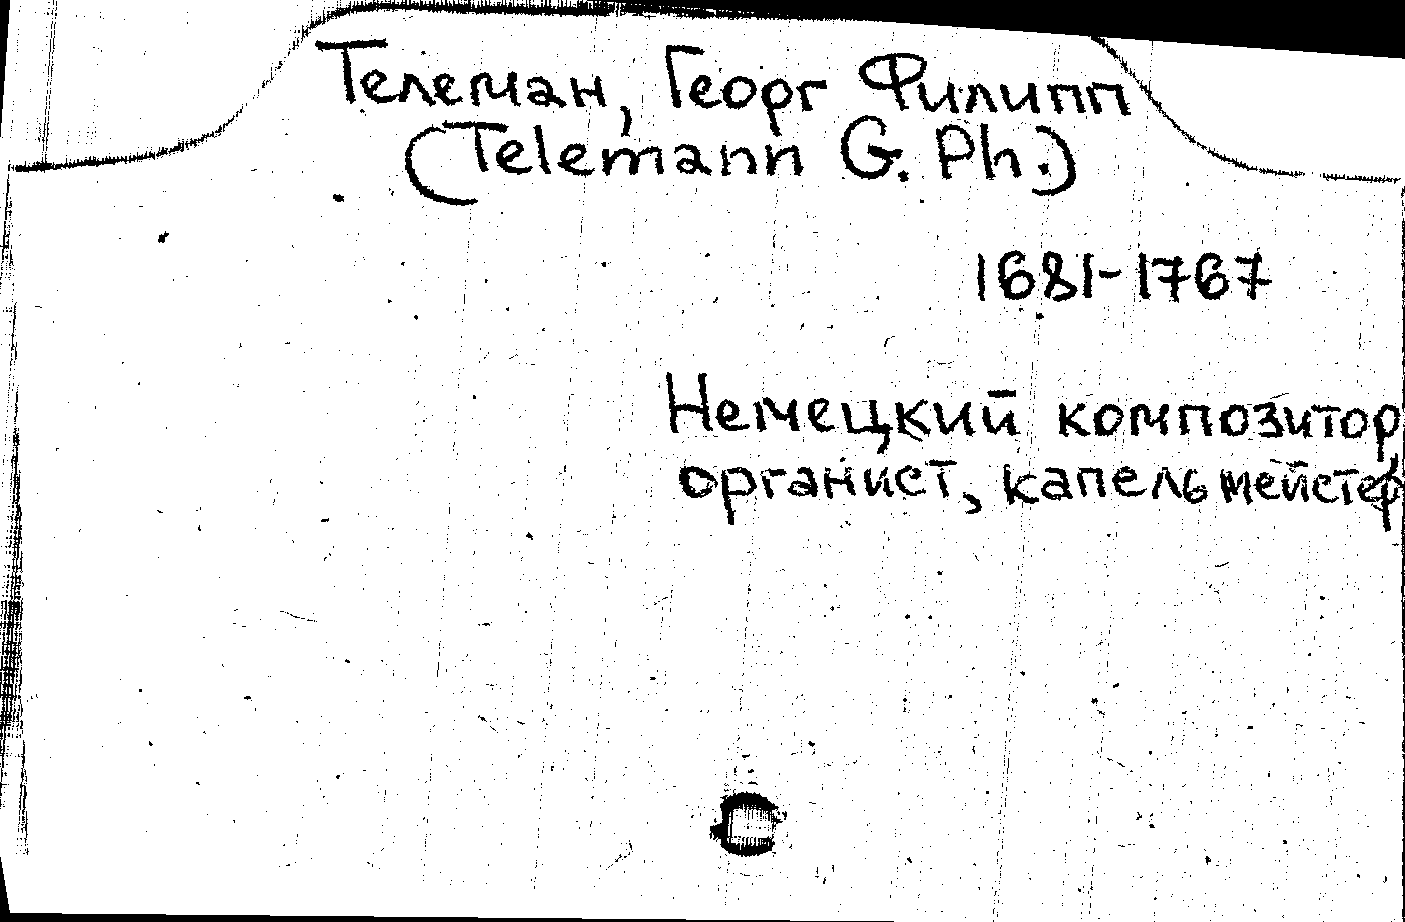 Телеман, Георг Филипп
(Telemann G. Ph.)
1681-1767
Немецкий композитор,
органист, капельмейстер